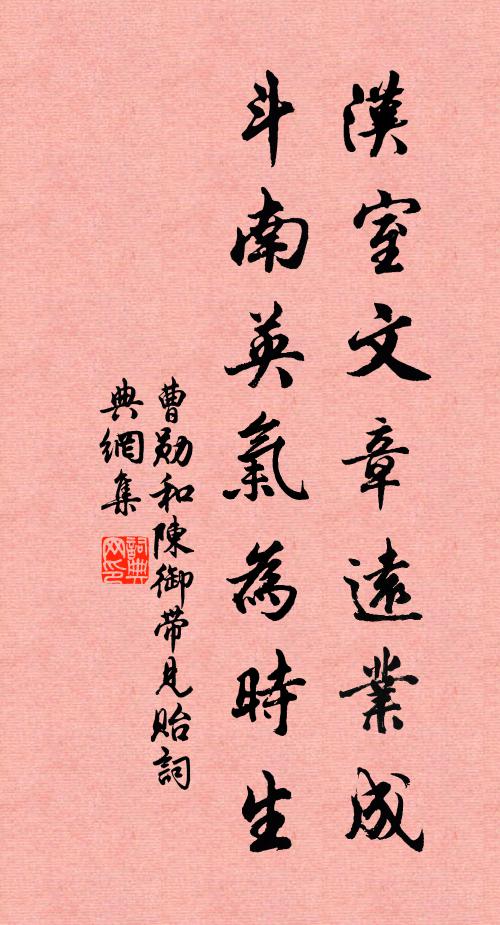 漢室文章遠業成
斗南英氣為時生
曹勛和陳御帶見貽詞
典網集
詞典
网印